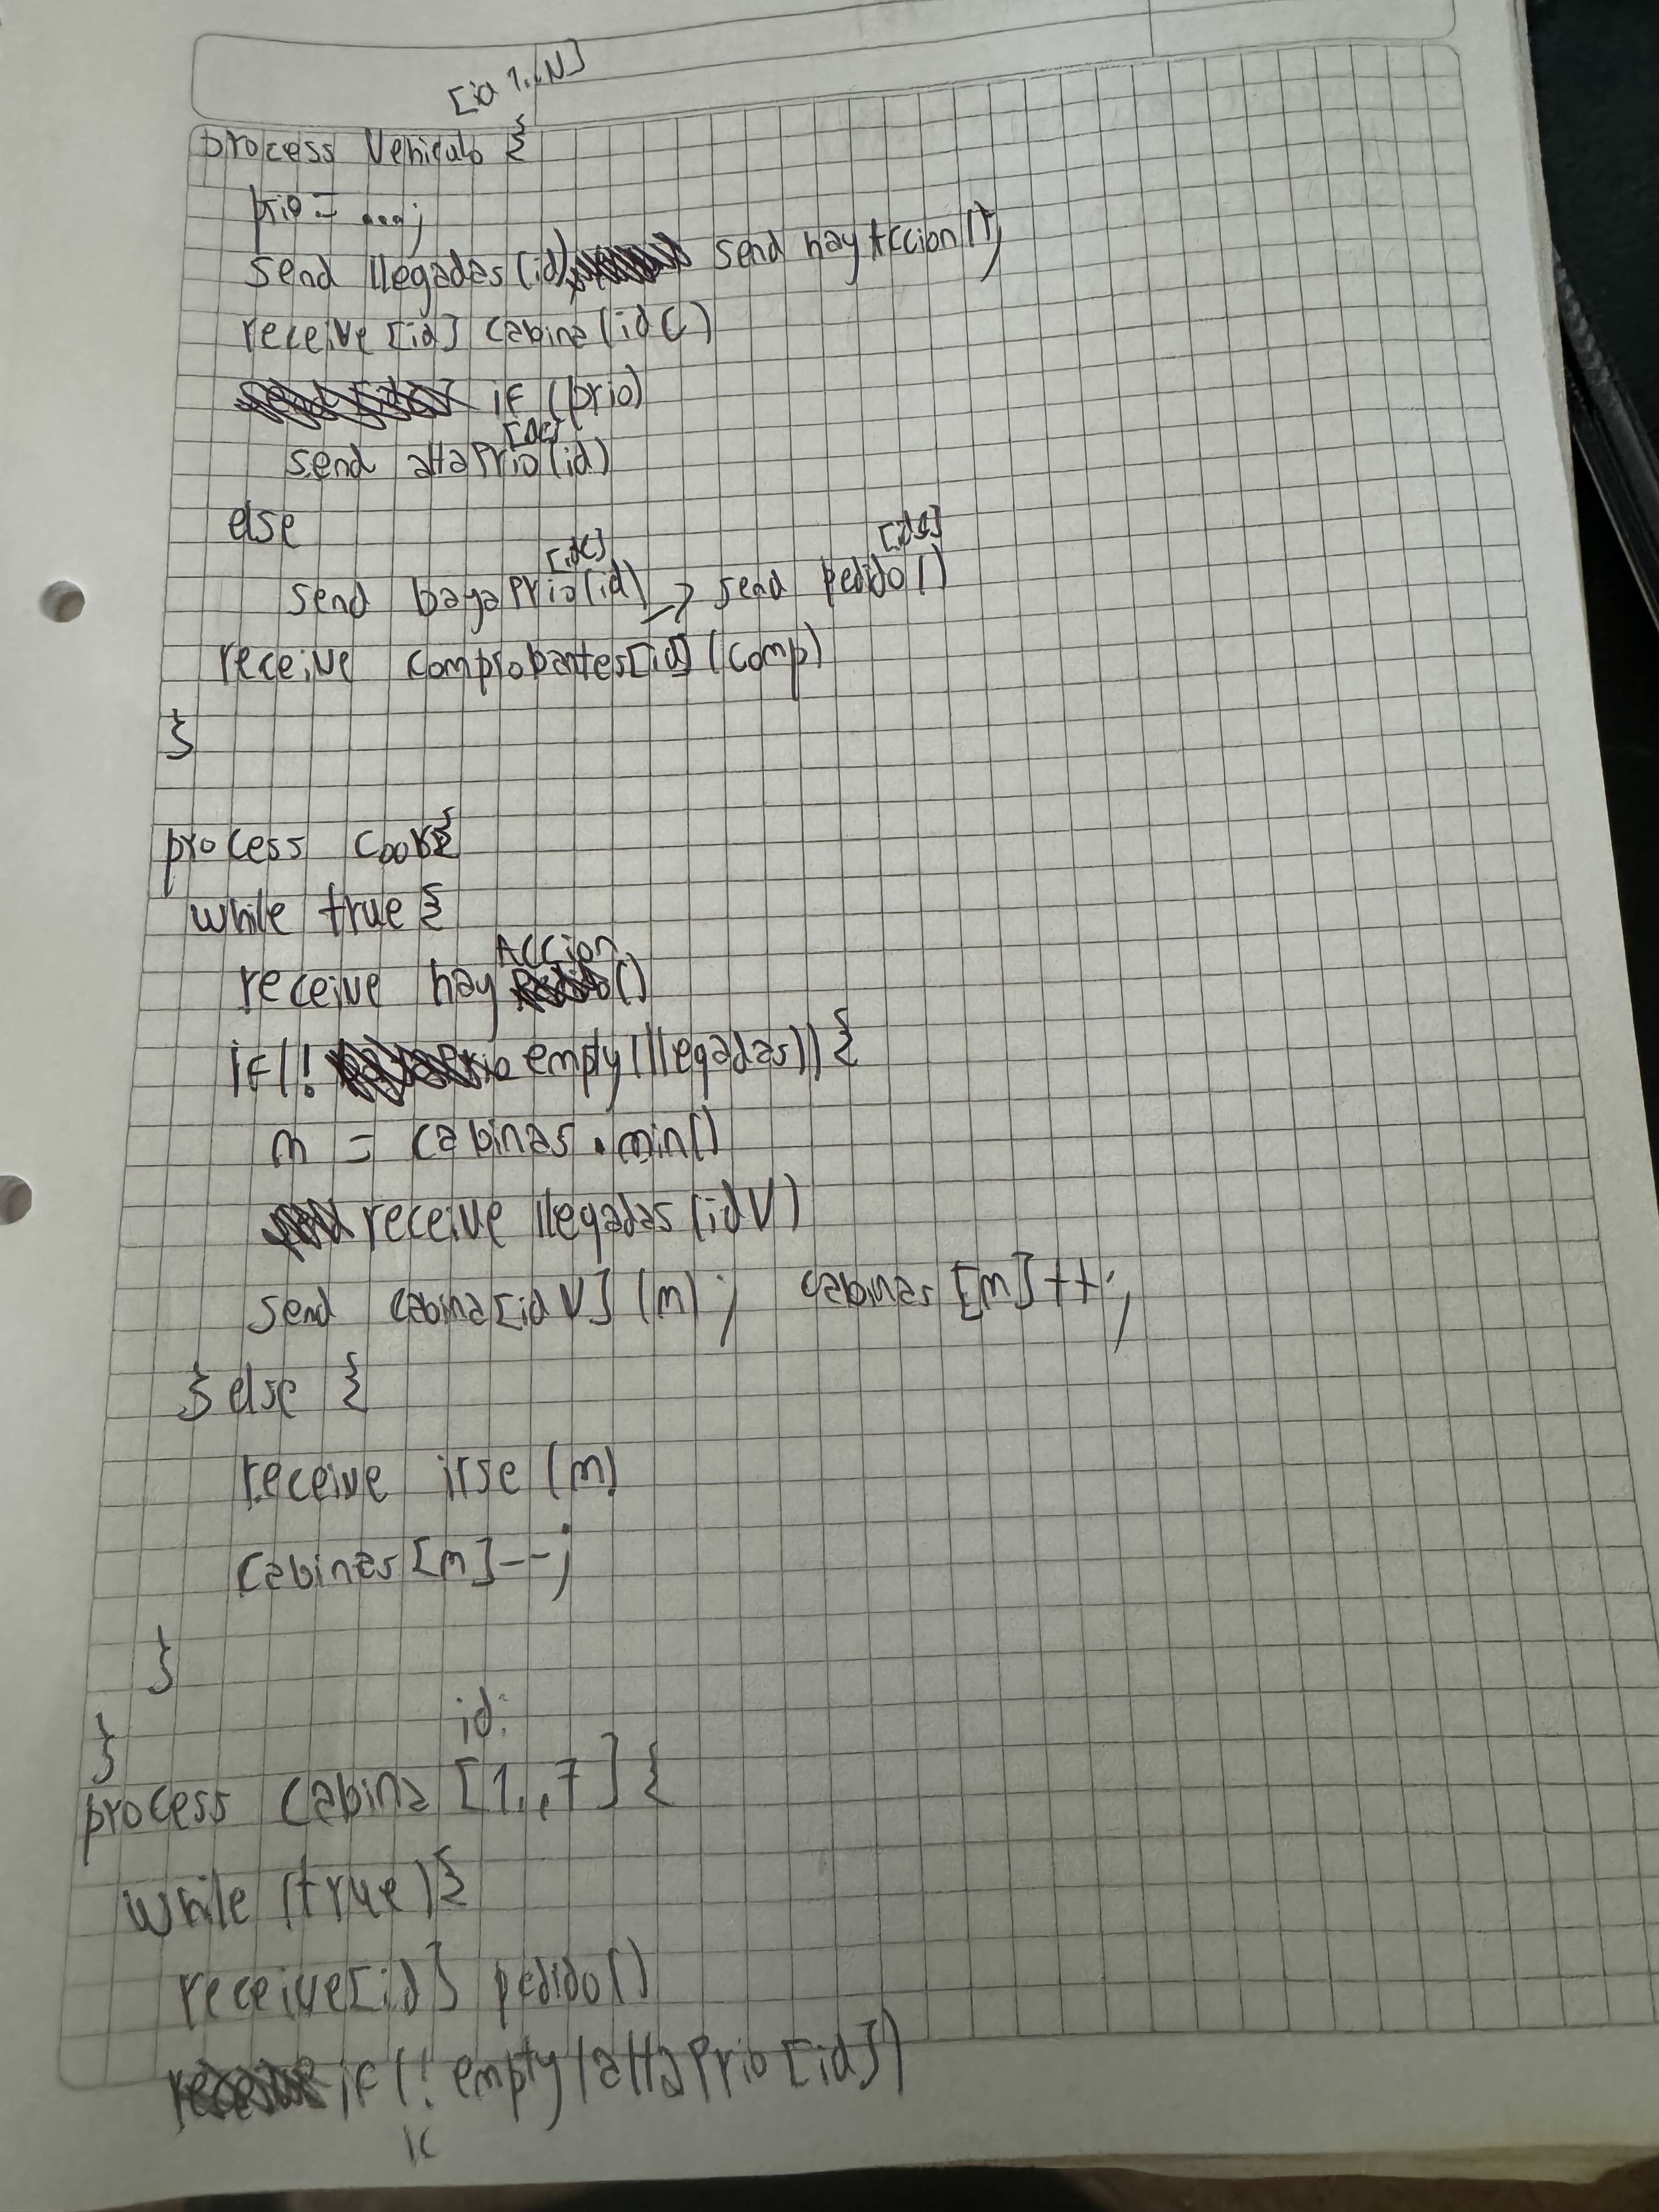 [id 1..N]
process Vehiculo {
prio = ...;
send llegadas(id); send hayAccion();
receive[id] cabina(idC)
if (prio)
[idC]
send altaPrio(id)
else
[idC] [idC]
send bajaPrio(id) → send pedido()
receive comprobantes[id](comp)
}
process Coor{
while true {
Accion
receive hay ()
if(! empty(llegadas)) {
m = cabinas.min()
receive llegadas(idV)
send cabina[idV](m); cabinas[m]++;
} else {
receive irse(m)
cabinas[m]--;
}
}
id:
process Cabina [1..7] {
while (true) {
receive[id] pedido()
if(! empty(altaPrio[id])